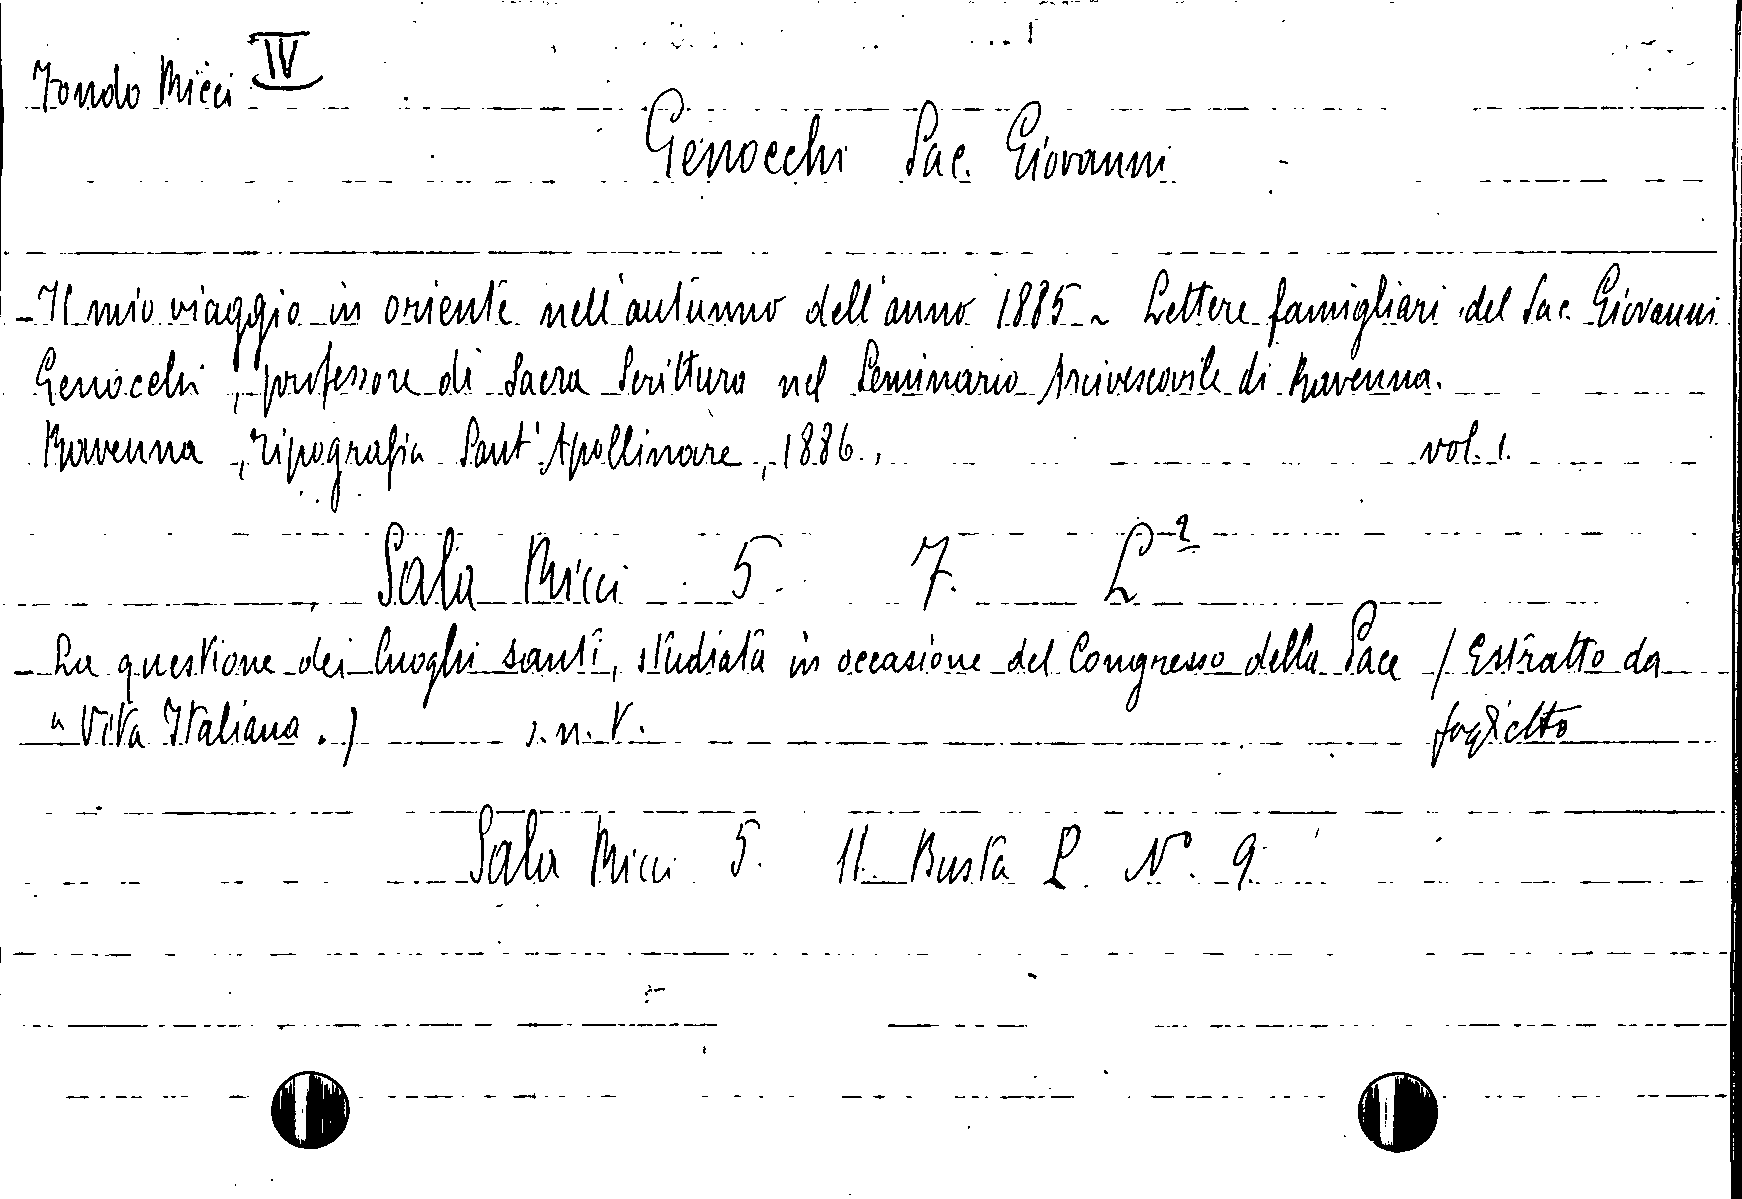 Fondo Ricci IV
Genocchi Sac. Giovanni
- Il mio viaggio in oriente nell'autunno dell'anno 1885 ~ Lettere famigliari del Sac. Giovanni
Genocchi, professore di Sacra Scrittura nel Seminario Arcivescovile di Ravenna.
Ravenna, Tipografia Sant'Apollinare, 1886, vol. 1.
Sala Ricci 5. 7. L²
- La questione dei luoghi santi, studiata in occasione del Congresso della Pace / Estratto da
"Vita Italiana." / s.n.t. foglietto
Sala Ricci 5. 11. Busta L. N° 9.